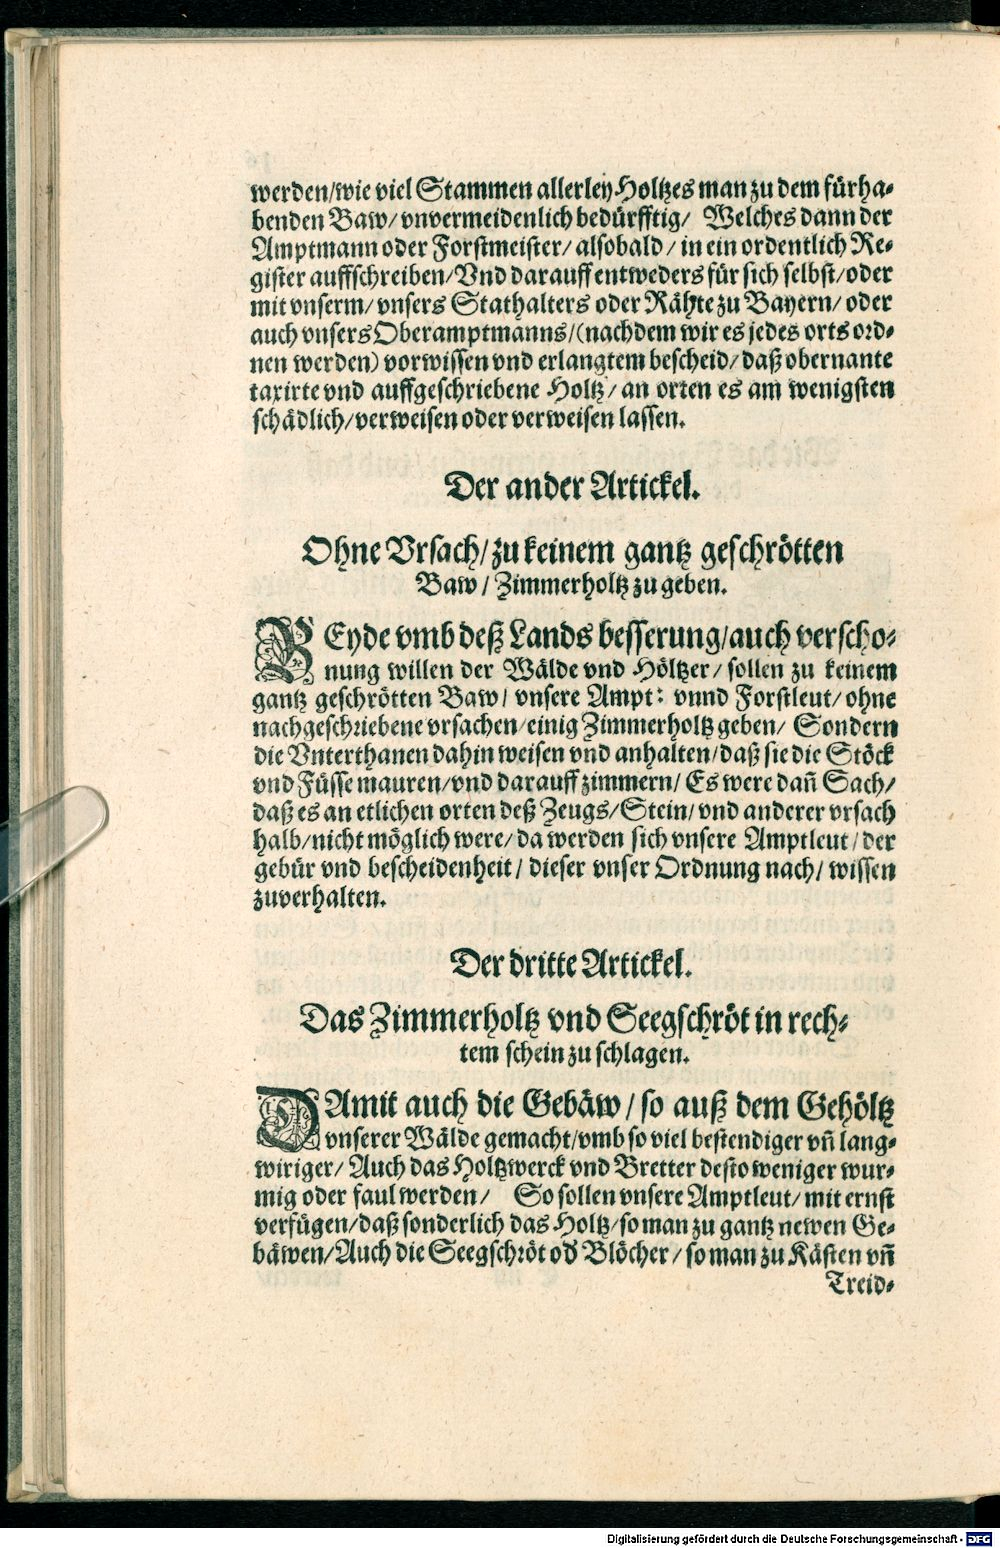 werden/wie viel Stammen allerley Holtzes man zu dem fürha-
benden Baw/ vnvermeidenlich bedürfftig/ Welches dann der
Amptmann oder Forstmeister/ alsobald/ in ein ordentlich Re-
gister auffschreiben/ Vnd darauff entweders für sich selbst/ oder
mit vnserm/ vnsers Stathalters oder Rähte zu Bayern/ oder
auch vnsers Oberamptmanns/ (nachdem wir es jedes orts ord-
nen werden) vorwissen vnd erlangtem bescheid/ daß obernante
taxirte vnd auffgeschriebene Holtz/ an orten es am wenigsten
schädlich/ verweisen oder verweisen lassen.
Der ander Artickel.
Ohne Vrsach/ zu keinem gantz geschrötten
Baw/ Zimmerholtz zu geben.
BEyde vmb deß Lands besserung/ auch verscho-
nung willen der Wälde vnd Höltzer/ sollen zu keinem
gantz geschrötten Baw/ vnsere Ampt: vnnd Forstleut/ ohne
nachgeschriebene vrsachen/ einig Zimmerholtz geben/ Sondern
die Vnterthanen dahin weisen vnd anhalten/ daß sie die Stöck
vnd Füsse mauren/ vnd darauff zimmern/ Es were dañ Sach/
daß es an etlichen orten deß Zeugs/ Stein/ vnd anderer vrsach
halb/ nicht möglich were/ da werden sich vnsere Amptleut/ der
gebür vnd bescheidenheit/ dieser vnser Ordnung nach/ wissen
zuverhalten.
Der dritte Artickel.
Das Zimmerholtz vnd Seegschröt in rech-
tem schein zu schlagen.
DAmit auch die Gebäw/ so auß dem Gehöltz
vnserer Wälde gemacht/ vmb so viel bestendiger vñ lang-
wiriger/ Auch das Holtzwerck vnd Bretter desto weniger wur-
mig oder faul werden/ So sollen vnsere Amptleut/ mit ernst
verfügen/ daß sonderlich das Holtz/ so man zu gantz newen Ge-
bäwen/ Auch die Seegschröt od' Blöcher/ so man zu Kästen vñ
Treid-
Digitalisierung gefördert durch die Deutsche Forschungsgemeinschaft - DFG